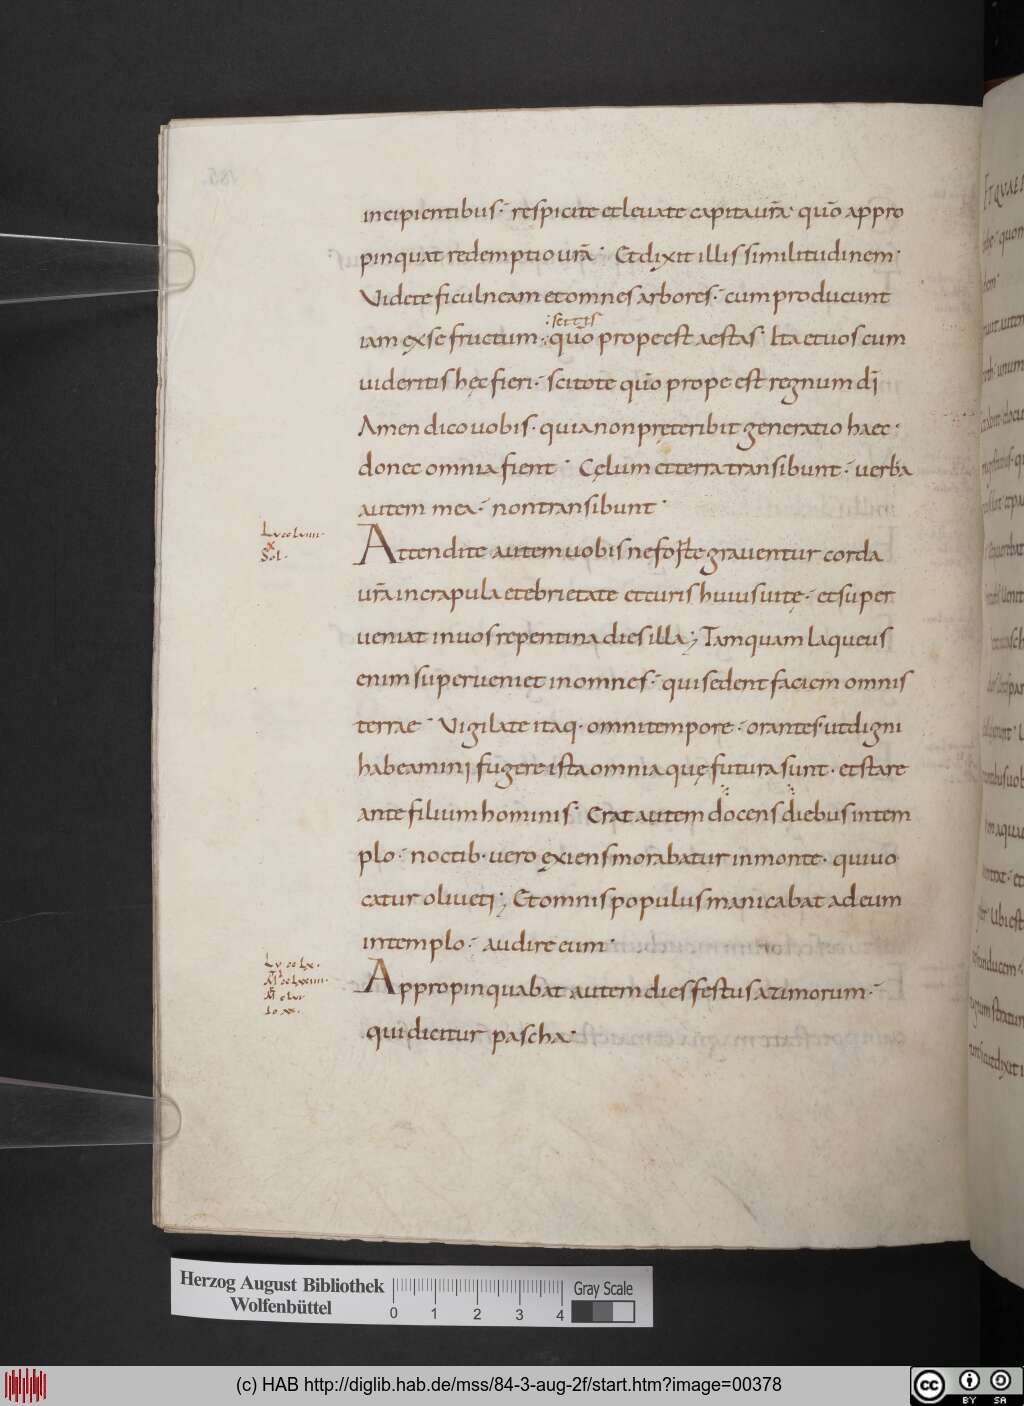 incipientibus· respicite et leuate capita ur̄a· quō appro
pinquat redemptio ur̄a· Et dixit illis similitudinem·
Videte ficulneam et omnes arbores· cum producunt
:scitis
iam ex se fructum· quō prope est aestas· Ita et uos cum
uideritis hęc fieri· scitote quō prope est regnum dī
Amen dico uobis· quia non pręteribit generatio haec·
donec omnia fient· Cęlum et terra transibunt· uerba
autem mea· non transibunt·
Attendite autem uobis ne forte grauentur corda
ur̄a in crapula et ebrietate et curis huius uitę· et super
ueniat in uos repentina dies illa; Tamquam laqueus
enim superueniet in omnes· qui sedent faciem omnis
terrae· Vigilate itaq· omni tempore· orantes· ut digni
habeamini fugere ista omnia quę futura sunt· et stare
ante filium hominis· Erat autem docens diebus in tem
plo· noctib· uero exiens morabatur in monte· qui uo
catur oliueti; Et omnis populus manicabat ad eum
in templo· audire eum·
Appropinquabat autem dies festus azimorum·
qui dicitur pascha·
Lu
x
Sol·
Lu
Et quae
Herzog August Bibliothek
Wolfenbüttel
0 1 2 3 4
Gray Scale
(c) HAB http://diglib.hab.de/mss/84-3-aug-2f/start.htm?image=00378
cc BY SA